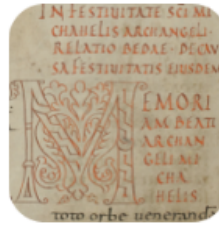 IN FESTIUITATE SCI MI
CHAHELIS ARCHANGELI·
RELATIO BEDAE· DE CAU
SA FESTIUITATIS EIUSDEM
MEMORI
AM BEATI
ARCHAN
GELI MI
CHA
HELIS
toto orbe uenerand